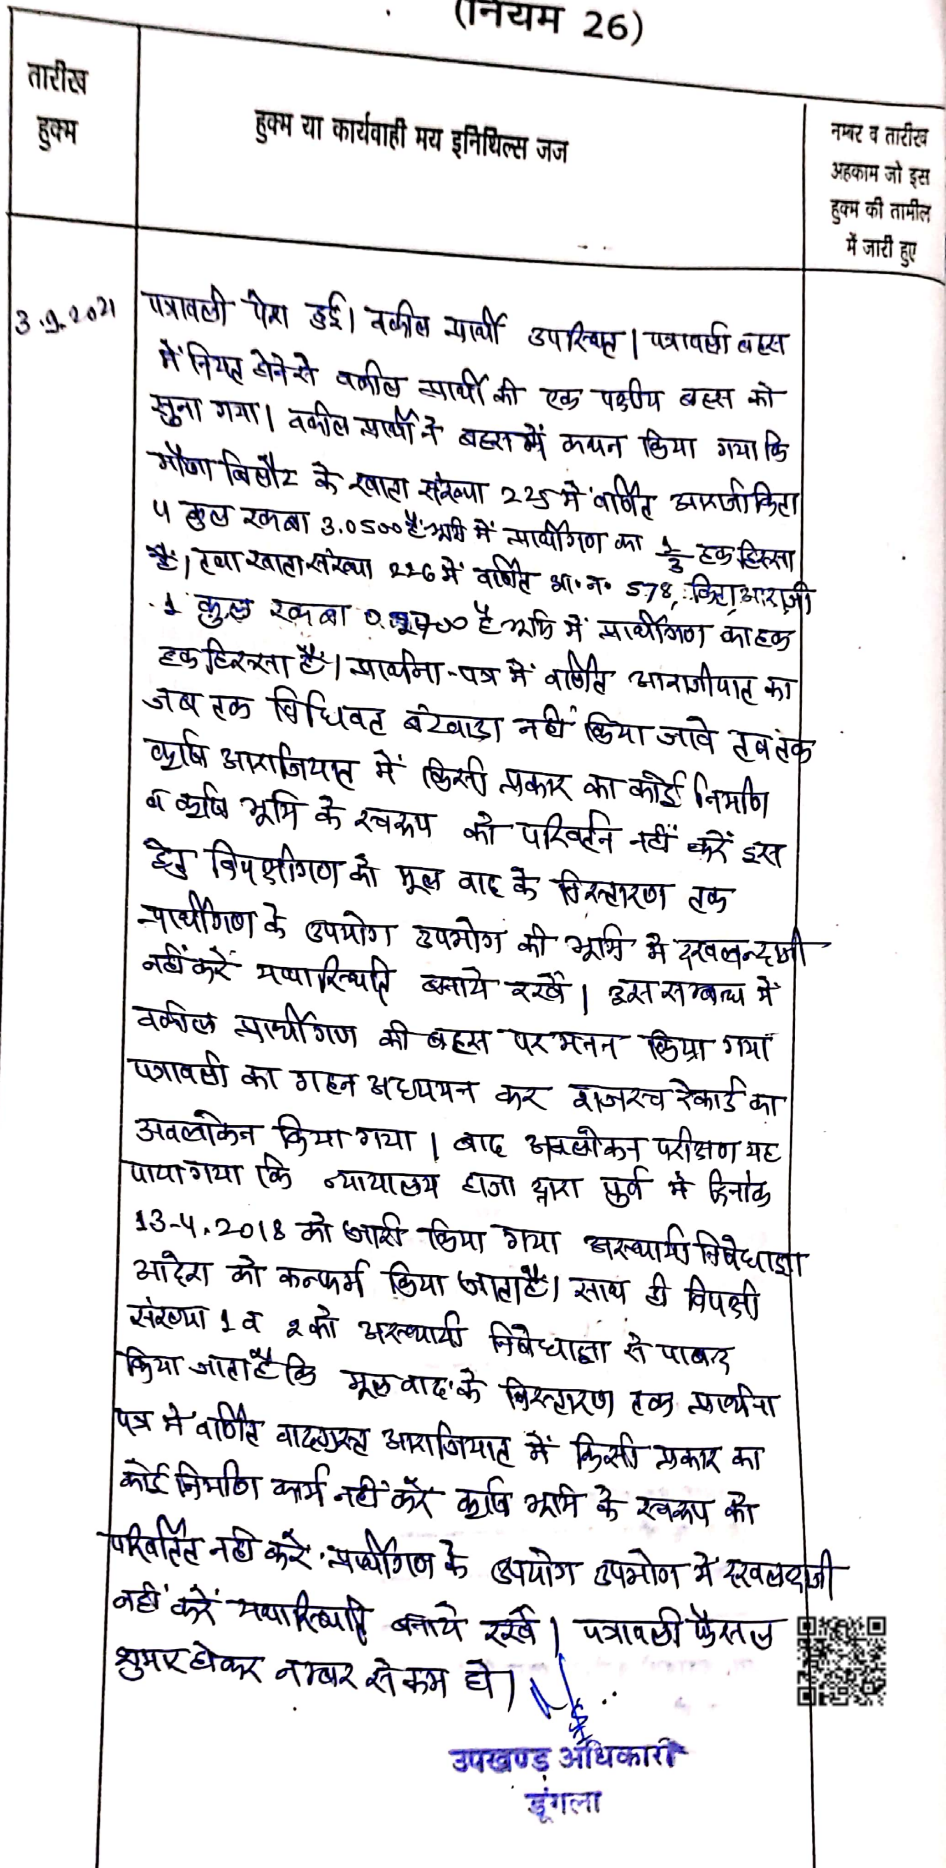 (नियम 26)
तारीख
हुक्म
हुक्म या कार्यवाही मय इनिथिल्स जज
नम्बर व तारीख
अहकाम जो इस
हुक्म की तामील
में जारी हुए
3.9.2021
पत्रावली पेश हुई। वकील प्रार्थी उपस्थित। पत्रावली बहस
में नियत होने से वकील प्रार्थी की एक पक्षीय बहस को
सुना गया। वकील प्रार्थी ने बहस में कथन किया गया कि
मौजा बिलौट के खाता संख्या 225 में वर्णित आराजी किता
4 कुल रकबा 3.0500 है भूमि में प्रार्थीगण का 1/3 हक हिस्सा
है। तथा खाता संख्या 226 में वर्णित आ.न. 578, किता आराजी
1 कुल रकबा है भूमि में प्रार्थीगण का हक
हक हिस्सा है। प्रार्थना-पत्र में वर्णित आराजीयात का
जब तक विधिवत बंटवाडा नहीं किया जावे तब तक
कृषि आराजियात में किसी प्रकार का कोई निर्माण
व कृषि भूमि के स्वरूप को परिवर्तन नहीं करें इस
हेतु विपक्षीगण को मूल वाद के निस्तारण तक
प्रार्थीगण के उपयोग उपभोग की भूमि में दखलन्दाजी
नहीं करें यथास्थिति बनाये रखें। इस सम्बन्ध में
वकील प्रार्थीगण की बहस पर मनन किया गया
पत्रावली का गहन अध्ययन कर राजस्व रेकार्ड का
अवलोकन किया गया। बाद अवलोकन परीक्षण यह
पाया गया कि न्यायालय हाजा द्वारा पुर्व में दिनांक
13-4.2018 को जारी किया गया अस्थायी निषेधाज्ञा
आदेश को कन्फर्म किया जाता है। साथ ही विपक्षी
संख्या 1 व 2 को अस्थायी निषेधाज्ञा से पाबन्द
किया जाता है कि मूल वाद के निस्तारण तक प्रार्थना
पत्र में वर्णित वादग्रस्त आराजियात में किसी प्रकार का
कोई निर्माण कार्य नहीं करें कृषि भूमि के स्वरूप को
परिवर्तित नही करे प्रार्थीगण के उपयोग उपभोग में दखलदाजी
नहीं करें यथास्थिति बनाये रखें। पत्रावली फैसल
शुमार होकर नम्बर से कम हो।
उपखण्ड अधिकारी
डूंगला